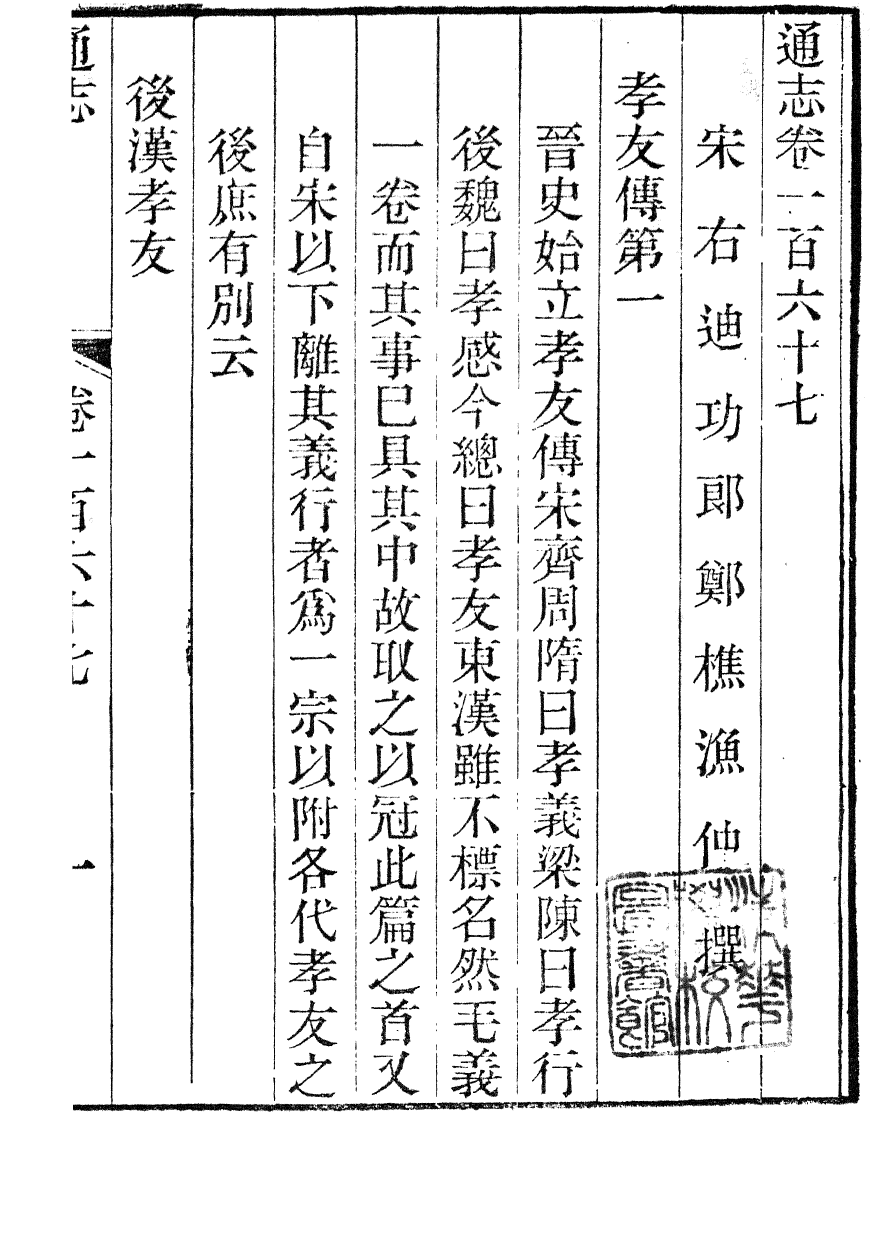 通志卷一百六十七
宋右迪功郎鄭樵漁仲撰
孝友傳第一
晉史始立孝友傳宋齊周隋曰孝義梁陳曰孝行
後魏曰孝感今總曰孝友東漢雖不標名然毛義
一卷而其事已具其中故取之以冠此篇之首又
自宋以下離其義行者爲一宗以附各代孝友之
後庶有別云
後漢孝友
通志 卷一百六十七 一